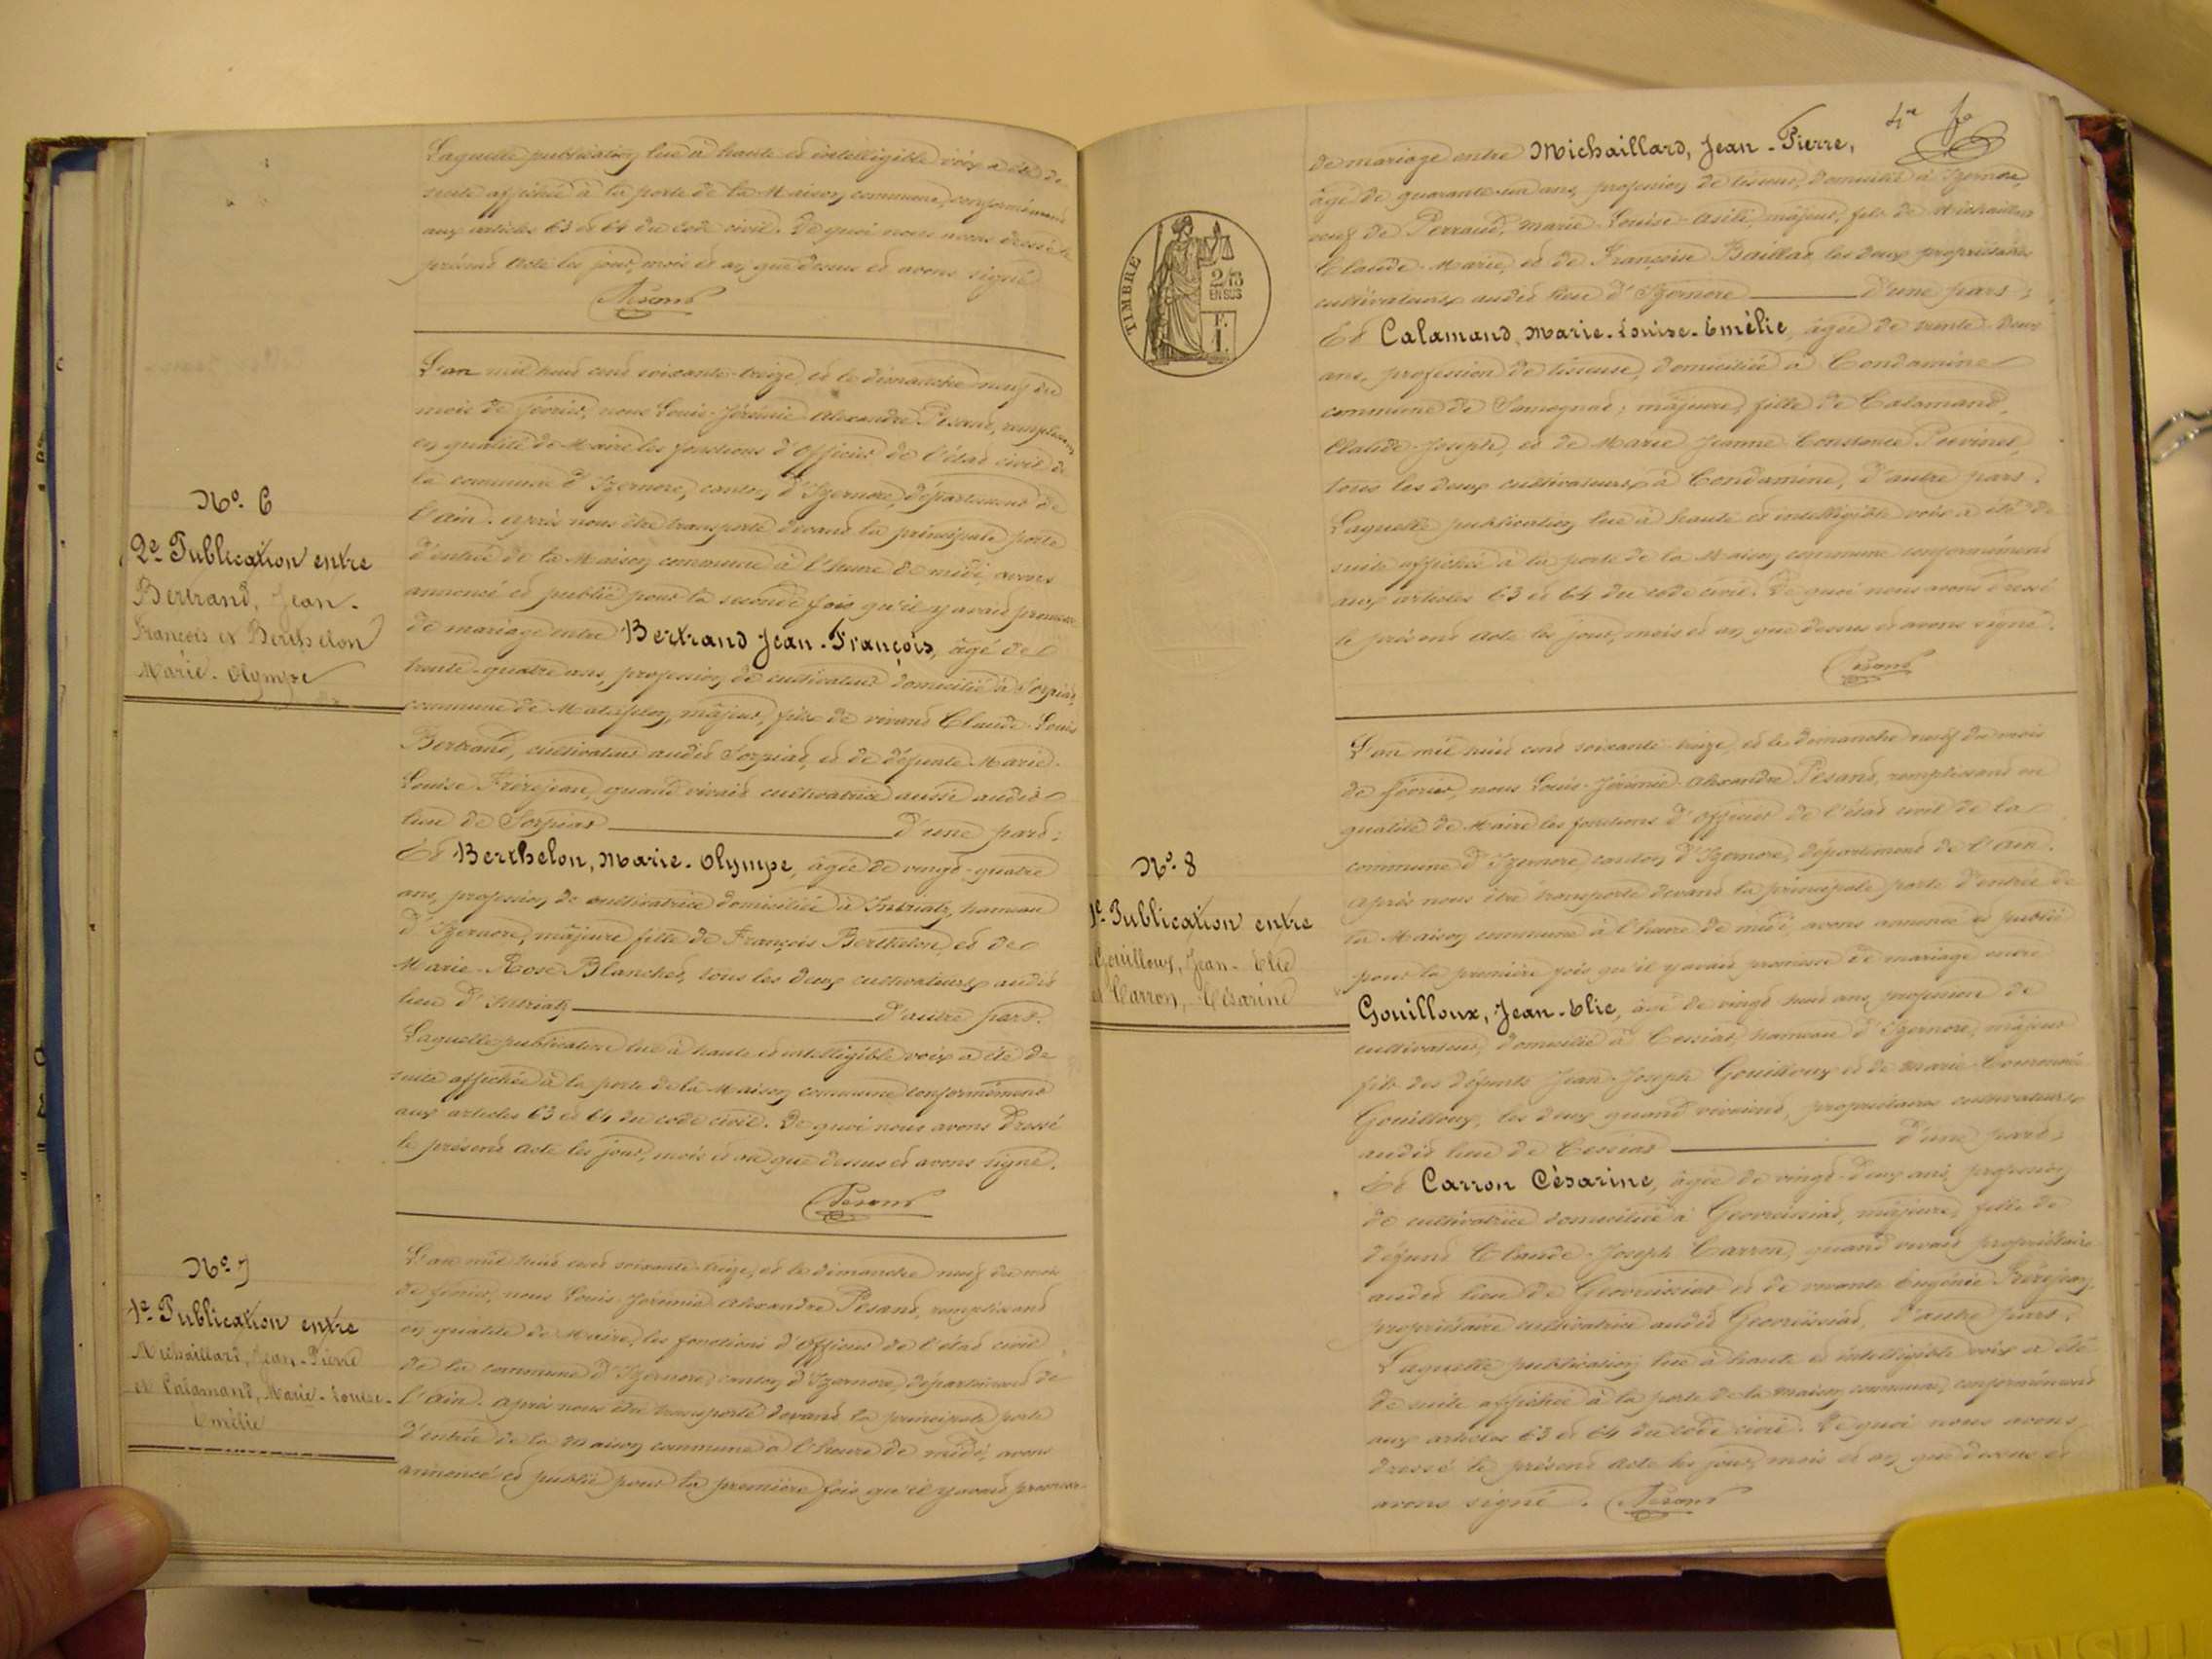 Laquelle publication lue à haute et intelligible voix a été de
suite affichée à la porte de la Maison commune, conformément
aux articles 63 et 64 du Code civil. De quoi nous avons dressé le
présent acte les jour, mois et an que dessus et avons signé
Pesand
N° 6
2e Publication entre
Bertrand, Jean-
François et Berthelon
Marie-Olympe
L'an mil huit cent soixante-treize, et le dimanche neuf du
mois de février, nous Louis-Jérémie-Alexandre Pesand, remplissant
en qualité de Maire les fonctions d'Officier de l'état civil de
la commune d'Izernore, canton d'Izernore, département de
l'Ain. Après nous être transporté devant la principale porte
d'entrée de la Maison commune à l'heure de midi, avons
annoncé et publié pour la seconde fois qu'il y avait promesse
de mariage entre Bertrand Jean-François, âgé de
trente-quatre ans, profession de cultivateur domicilié à Sorpiat,
commune de Matafelon, majeur, fils de vivant Claude-Louis
Bertrand, cultivateur audit Sorpiat, et de défunte Marie-
Louise Frèrejean, quand vivait cultivatrice aussi audit
lieu de Sorpiat d'une part;
Et Berthelon, Marie-Olympe, âgée de vingt-quatre
ans, profession de cultivatrice domiciliée à Intriat, hameau
d'Izernore, majeure fille de François Berthelon, et de
Marie-Rose Blanchet, tous les deux cultivateurs audit
lieu d'Intriat d'autre part.
Laquelle publication lue à haute et intelligible voix a été de
suite affichée à la porte de la Maison commune conformément
aux articles 63 et 64 du code civil. De quoi nous avons dressé
le présent acte les jour, mois et an que dessus et avons signé.
Pesand
N° 7
1re Publication entre
Michaillard, Jean-Pierre
et Calamand, Marie-Louise-
Emélie
L'an mil huit cent soixante-treize, et le dimanche neuf du mois
de février, nous Louis-Jérémie-Alexandre Pesand, remplissant
en qualité de Maire, les fonctions d'Officier de l'état civil
de la commune d'Izernore, canton d'Izernore, département de
l'Ain. Après nous être transporté devant la principale porte
d'entrée de la Maison commune à l'heure de midi, avons
annoncé et publié pour la première fois qu'il y avait promesse
4e
de mariage entre Michaillard, Jean-Pierre,
âgé de quarante-un ans, profession de tisseur, domicilié à Izernore,
veuf de Perraud, Marie-Louise majeur, fils de Michaillard
Claude-Marie, et de Françoise Baillat les deux propriétaires
cultivateurs audit lieu d'Izernore d'une part;
Et Calamand, Marie-Louise-Emélie, âgée de trente-deux
ans, profession de tisseuse, domiciliée à Condamine
commune de Samognat; majeure, fille de Calamand,
Claude-Joseph, et de Marie Jeanne Constance
tous les deux cultivateurs à Condamine, d'autre part.
Laquelle publication lue à haute et intelligible voix a été de
suite affichée à la porte de la Maison commune conformément
aux articles 63 et 64 du code civil. De quoi nous avons dressé
le présent acte les jour, mois et an que dessus et avons signé.
Pesand
TIMBRE
2/10
EN SUS
F.
1.
N° 8
1e Publication entre
Gouilloux, Jean-Elie
et Carron, Césarine
L'an mil huit cent soixante-treize, et le dimanche neuf du mois
de février, nous Louis-Jérémie-Alexandre Pesand, remplissant en
qualité de Maire les fonctions d'Officier de l'état civil de la
commune d'Izernore canton d'Izernore, département de l'Ain.
Après nous être transporté devant la principale porte d'entrée de
la Maison commune à l'heure de midi, avons annoncé et publié
pour la première fois qu'il y avait promesse de mariage entre
Gouilloux, Jean-Elie, âgé de vingt-huit ans, profession de
cultivateur, domicilié à Cessiat, hameau d'Izernore, majeur
fils des défunts Jean-Joseph Gouilloux et de Marie
Gouilloux, les deux quand vivaient, propriétaires cultivateurs
audit lieu de Cessiat d'une part;
Et Carron Césarine, âgée de vingt-deux ans, profession
de cultivatrice domiciliée à Geovreissiat, majeure, fille de
défunt Claude-Joseph Carron, quand vivait propriétaire
audit lieu de Geovreissiat et de vivante Eugénie Frèrejean
propriétaire cultivatrice audit Geovreissiat, d'autre part.
Laquelle publication lue à haute et intelligible voix a été
de suite affichée à la porte de la Maison commune, conformément
aux articles 63 et 64 du code civil. De quoi nous avons
dressé le présent acte les jour, mois et an que dessus et
avons signé. Pesand